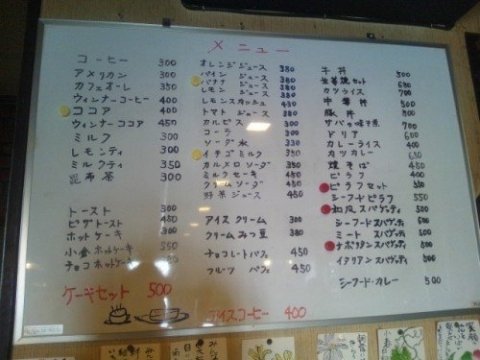 メニュー
コーヒー 300
アメリカン 300
カフェオーレ 350
ウィンナーコーヒー 400
ココア 400
ウィンナーココア 450
ミルク 300
レモンティ 300
ミルクティ 350
昆布茶 300
トースト 300
ピザトースト 450
ホットケーキ 300
小倉ホットケーキ 350
チョコホットケーキ
ケーキセット 500
オレンジジュース 380
パインジュース 380
バナナジュース 380
レモンジュース 380
レモンスカッシュ
トマトジュース 380
カルピス 300
コーラ 300
ソーダ水 330
イチゴミルク 350
カルメロソーダ 350
ミルクセーキ
クリームソーダ 450
野菜ジュース 450
アイスクリーム 300
クリームみつ豆 380
チョコレートパフェ 450
フルーツパフェ 450
アイスコーヒー 400
牛丼 500
生姜焼セット
カツライス 700
中華丼
豚丼
サバの味噌煮 700
ドリア 600
カレーライス 400
カツカレー
焼そば 450
ピラフセット
シーフードピラフ 550
和風スパゲッティ
シーフードスパゲッティ
ミートスパゲッティ 500
ナポリタンスパゲッティ
イタリアンスパゲッティ 500
シーフード・カレー 500